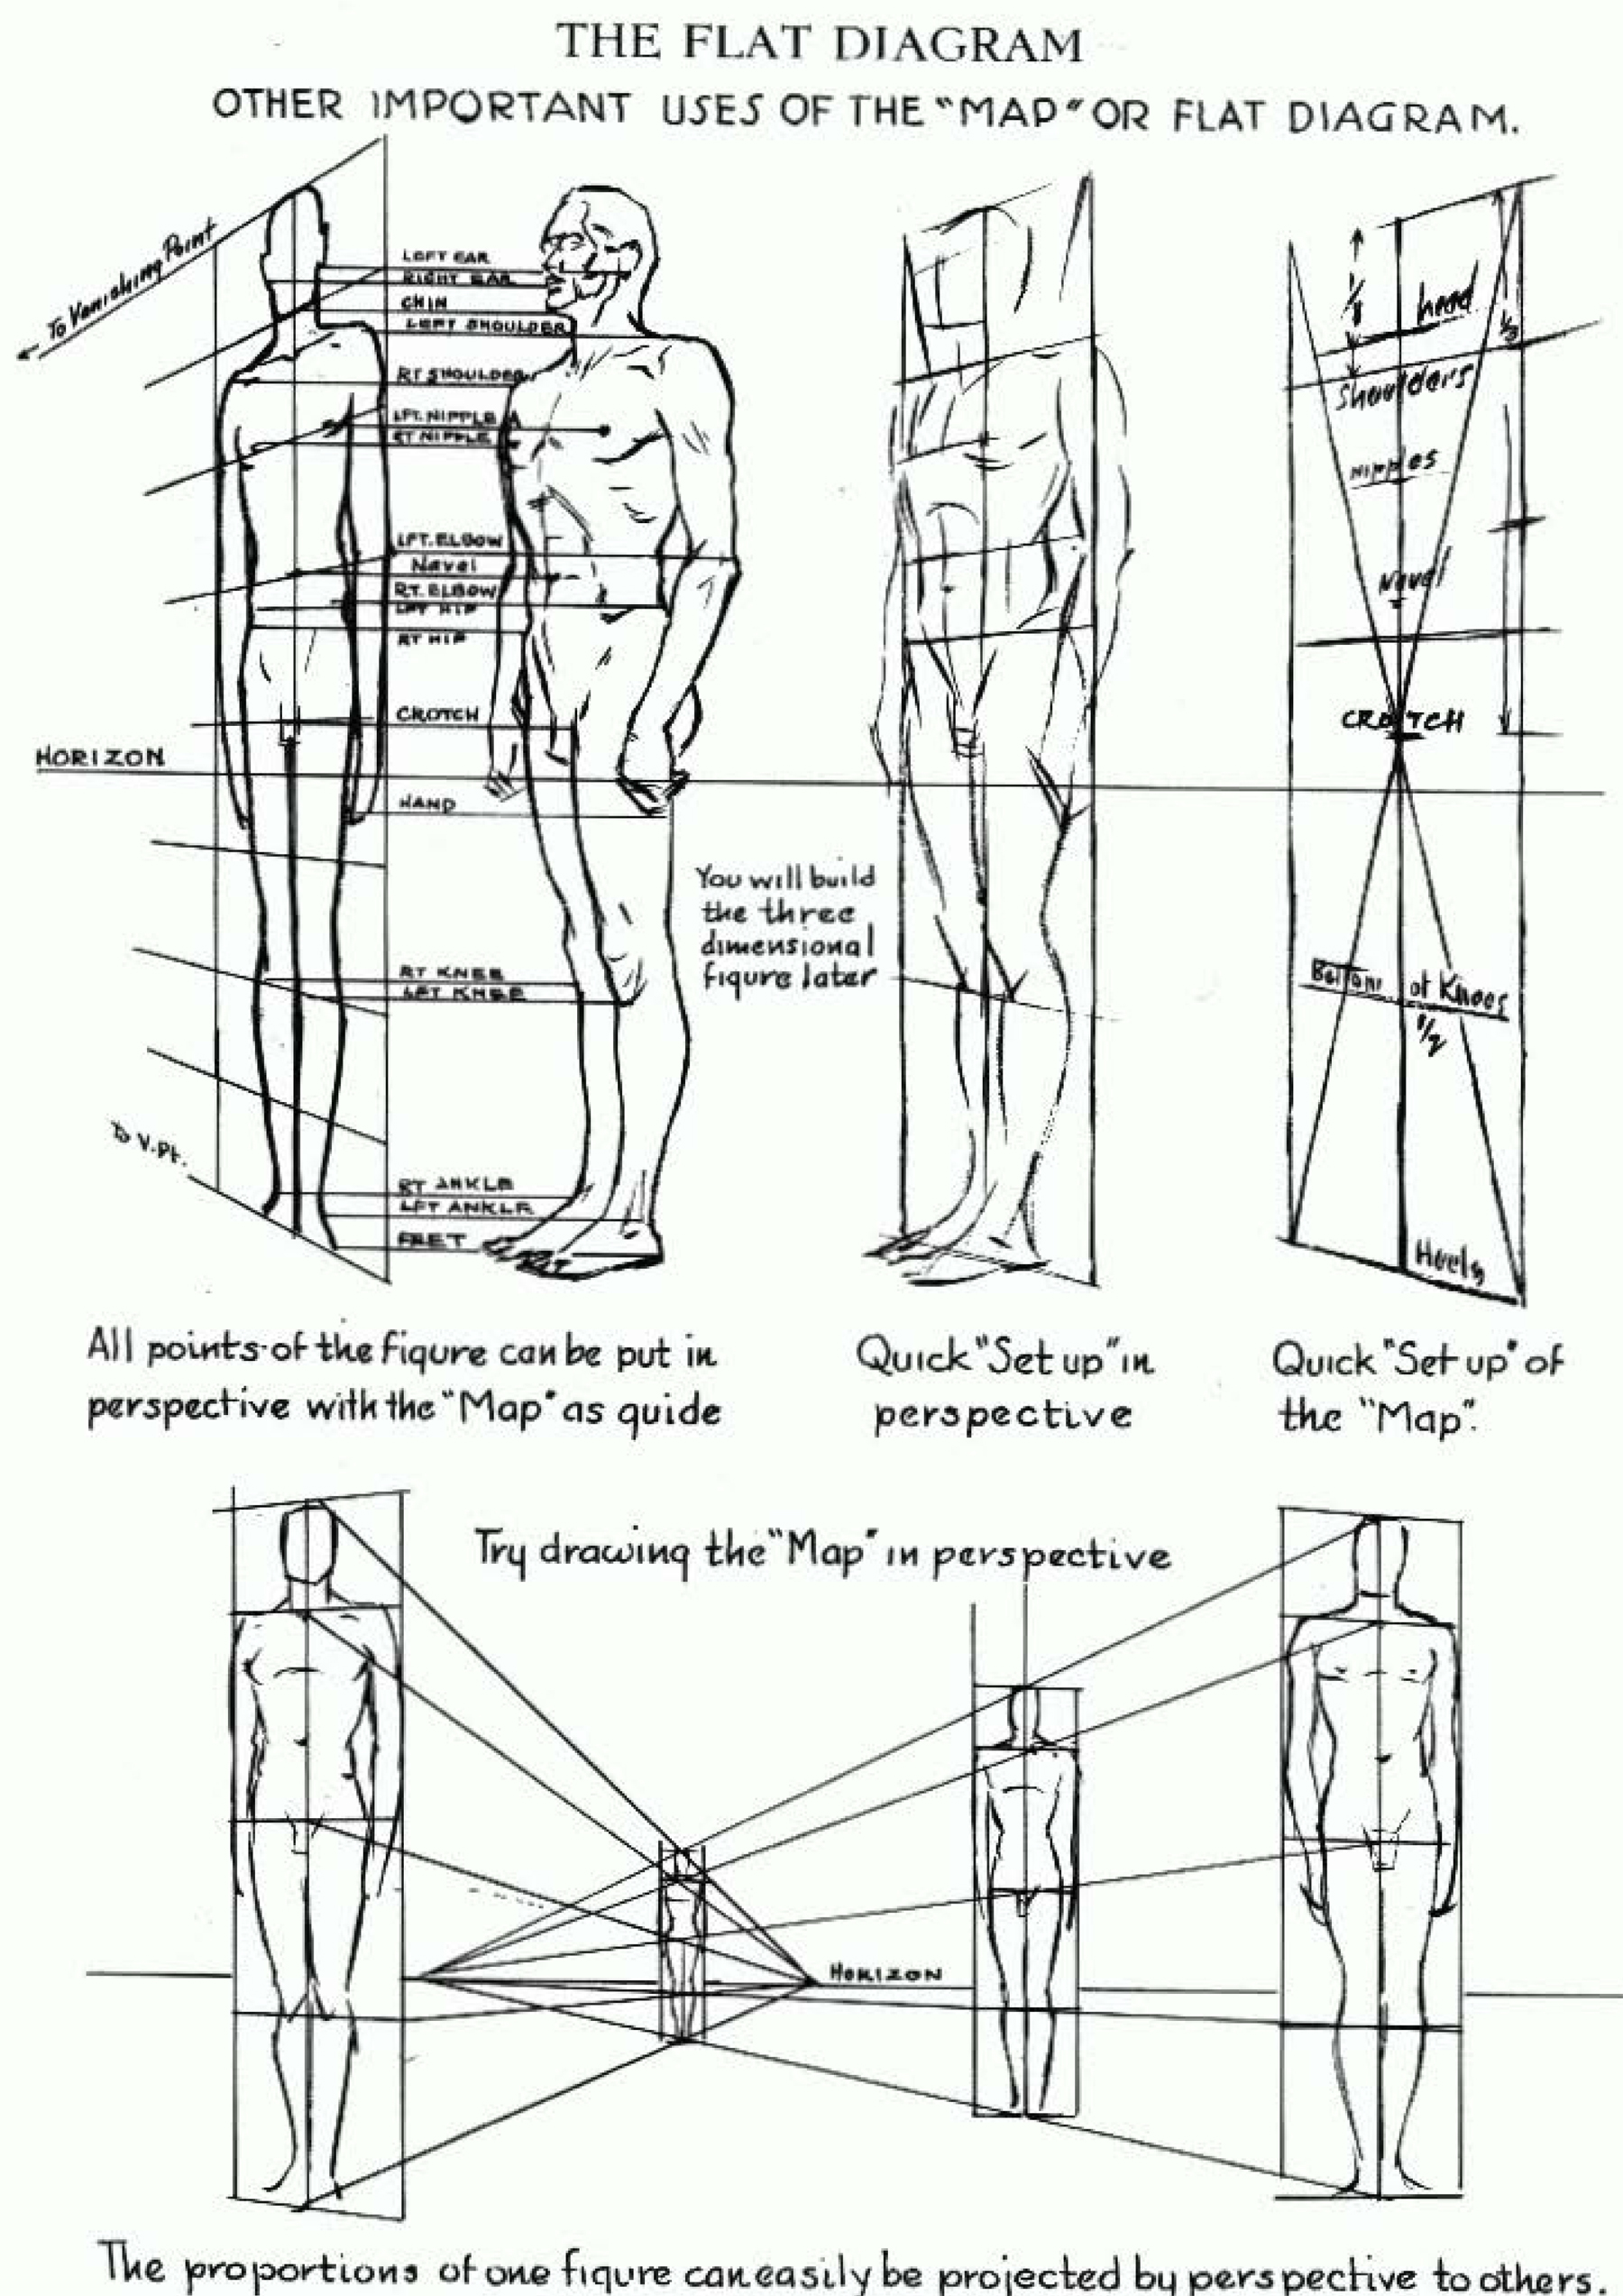 THE FLAT DIAGRAM
OTHER IMPORTANT USES OF THE "MAP" OR FLAT DIAGRAM.
To Vanishing Point
LEFT EAR
RIGHT EAR
CHIN
LEFT SHOULDER
RT SHOULDER
LFT. NIPPLE
RT NIPPLE
LFT. ELBOW
Navel
RT. ELBOW
LFT HIP
RT HIP
CROTCH
HORIZON
HAND
RT KNEE
LFT KNEE
To V.Pt.
RT ANKLE
LFT ANKLE
FEET
You will build
the three
dimensional
figure later
head
1/3
Shoulders
nipples
Navel
CROTCH
Bottom of Knees
1/2
Heels
All points of the figure can be put in
perspective with the "Map" as guide
Quick "Set up" in
perspective
Quick "Set up" of
the "Map".
Try drawing the "Map" in perspective
HORIZON
The proportions of one figure can easily be projected by perspective to others.